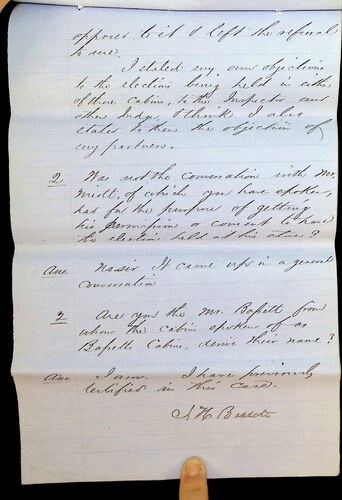 opposed to it & left the referral
to me.
I stated my own objections
to the election being held in either
of these cabins, to the Inspector and
other Judge. I think I also
stated to them the objection of
my partners.
2 Was not the conversation with Mr.
of which you have spoken,
had for the purpose of getting
his permission or consent to have
the election held at his store?
Ans No sir It came up in a general
conversation
2 Are you the Mr. Bassett from
whom the cabins spoken of as
Bassetts Cabins, derive their name?
Ans I am. I have previously
testified in this case.
Bassett